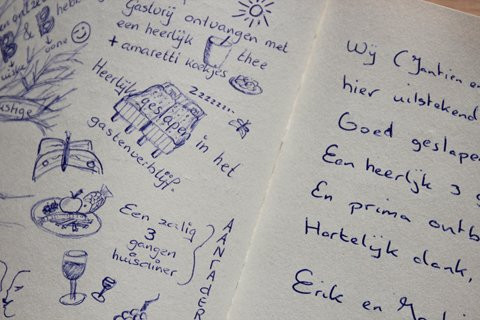 B & B heb
Gastvrij ontvangen met
een heerlijk thee
+ amaretti koekjes
zzzzzzz
Heerlijk geslapen in het
gastenverblijf.
Een zalig
3
gangen
huisdiner
AANRADER
Wij (Jantien en
hier uitstekend
Goed geslape
Een heerlijk 3 g
En prima ontb
Hartelijk dank,
Erik en